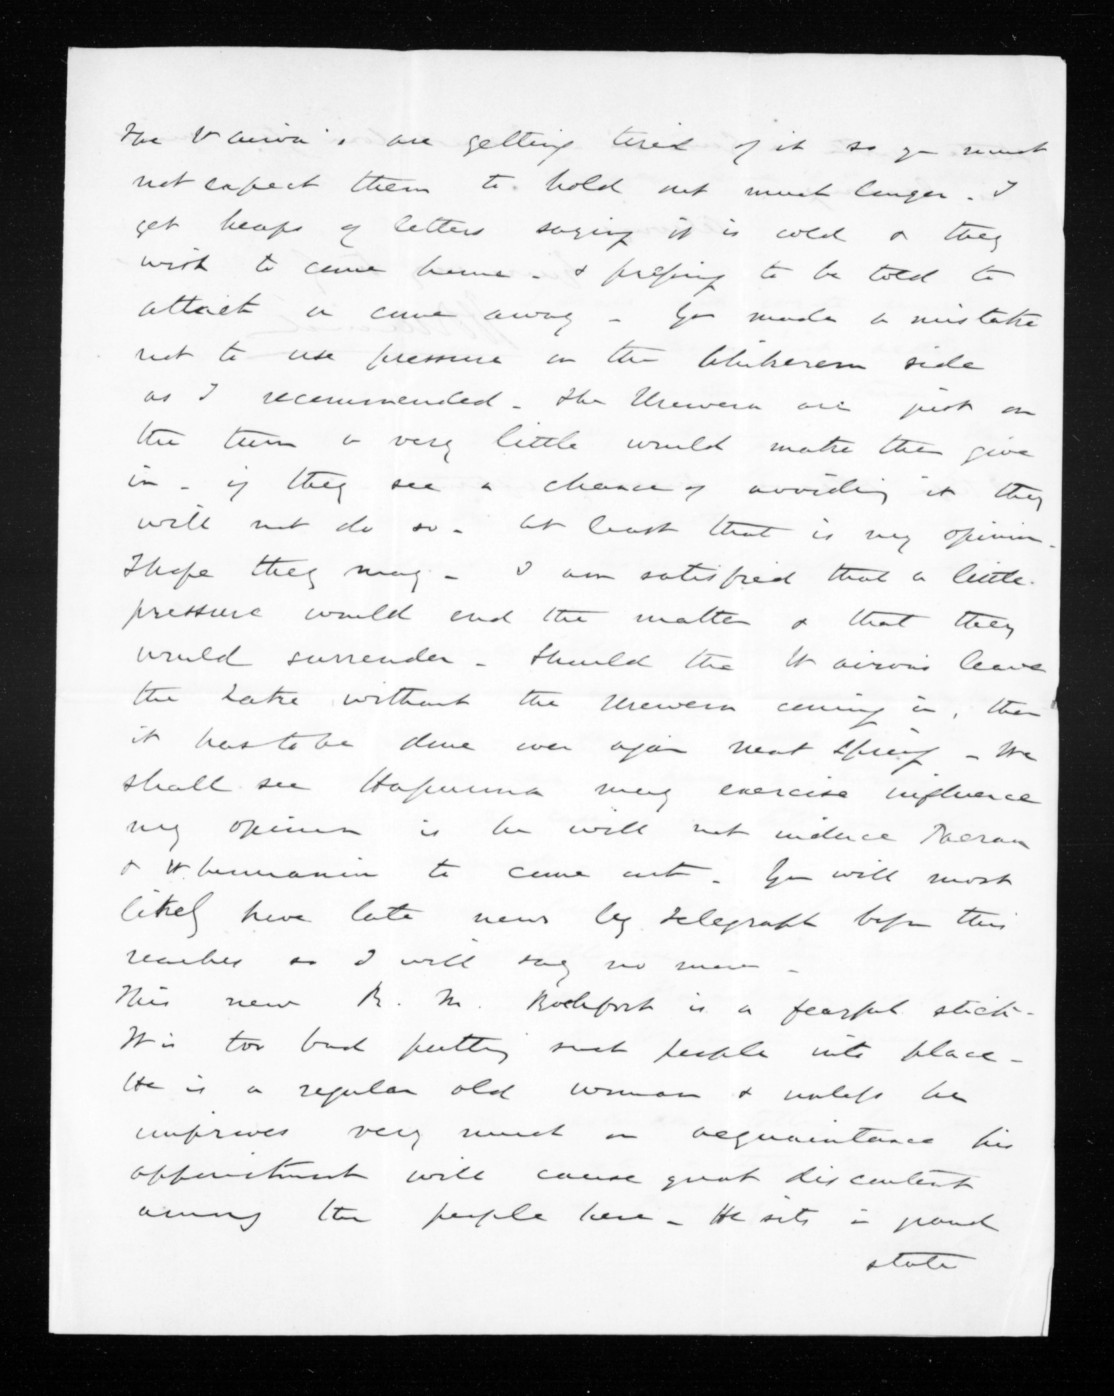 The Wairoa's are getting tired of it so you must
not expect them to hold out much longer. I
get heaps of letters saying it is cold & they
wish to come home - & pressing to be told to
attack or come away - You made a mistake
not to use pressure on the side
as I recommended - the Urewera are just on
the turn a very little would make them give
in - if they see a chance of avoiding it they
will not do so - at least that is my opinion -
I hope they may - I am satisfied that a little
pressure would end the matter & that they
would surrender - Should the Wairoas leave
the Lake without the Urewera coming in, then
it has to be done over again next Spring - We
shall see Hapurona may exercise influence
my opinion is he will not induce Paerau
& Whenuanui to come out - You will most
likely have late news by telegraph before this
reaches so I will say no more -
This new R. M. Rochfort is a fearful stick -
It is too bad putting such people into place -
He is a regular old woman & unless he
improves very much on acquaintance his
appointment will cause great discontent
among the people here - He sits in grand
state